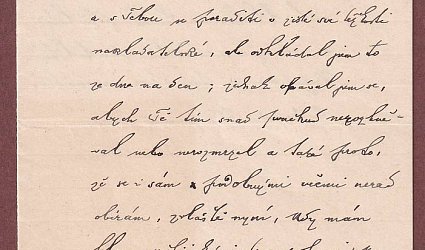 a s Tebou se poraditi o jisté své těžkosti
nakladatelské, ale odkládal jsem to
ze dne na den; jednak obával jsem se,
abych Tě tím snad poněkud nerozhně-
val nebo nerozmrzel a také proto,
že se i sám podobnými věcmi nerad
obírám, zvláště nyní, kdy mám